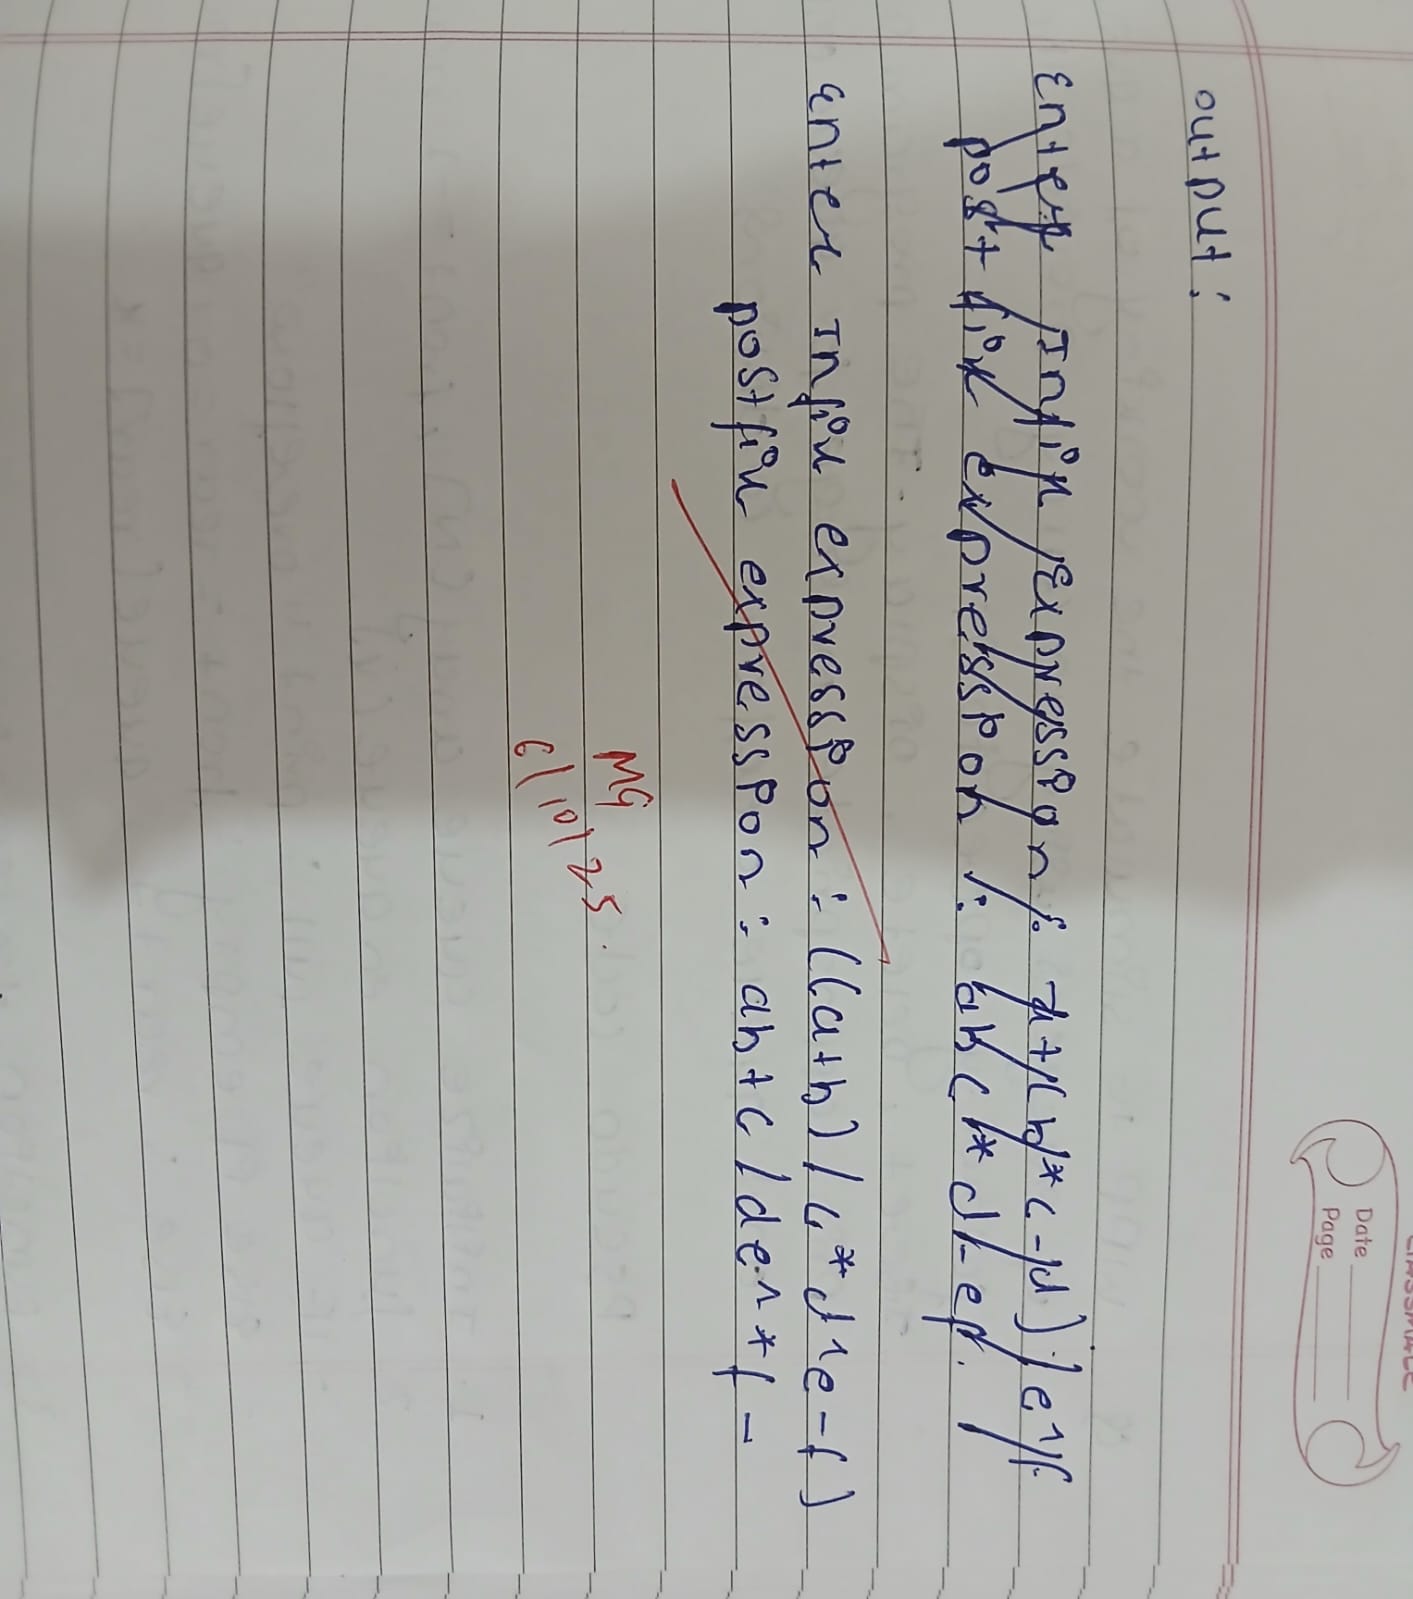 CLASSMATE
Date
Page
output :
Enter Infix Expression : a+(b*c-d)/e^f
postfix expression : abc*d-ef
Enter Infix expression : ((a+b)/c*d^e-f)
postfix expression : ab+c/de^*f-
MG
6/10/25.